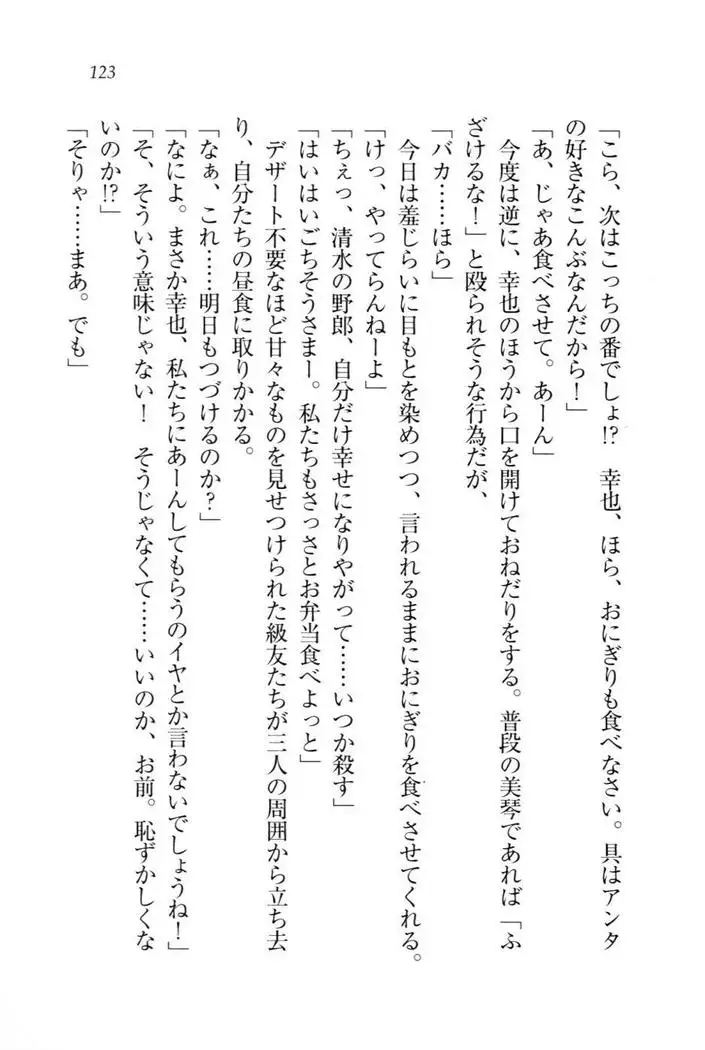 123
「こら、次はこっちの番でしょ!?　幸也、ほら、おにぎりも食べなさい。具はアンタ
の好きなこんぶなんだから！」
「あ、じゃあ食べさせて。あーん」
　今度は逆に、幸也のほうから口を開けておねだりをする。普段の美琴であれば「ふ
ざけるな！」と殴られそうな行為だが、
「バカ……ほら」
　今日は羞じらいに目もとを染めつつ、言われるままにおにぎりを食べさせてくれる。
「けっ、やってらんねーよ」
「ちぇっ、清水の野郎、自分だけ幸せになりやがって……いつか殺す」
「はいはいごちそうさまー。私たちもさっさとお弁当食べよっと」
　デザート不要なほど甘々なものを見せつけられた級友たちが三人の周囲から立ち去
り、自分たちの昼食に取りかかる。
「なぁ、これ……明日もつづけるのか？」
「なによ。まさか幸也、私たちにあーんしてもらうのイヤとか言わないでしょうね！」
「そ、そういう意味じゃない！　そうじゃなくて……いいのか、お前。恥ずかしくな
いのか!?」
「そりゃ……まあ。でも」